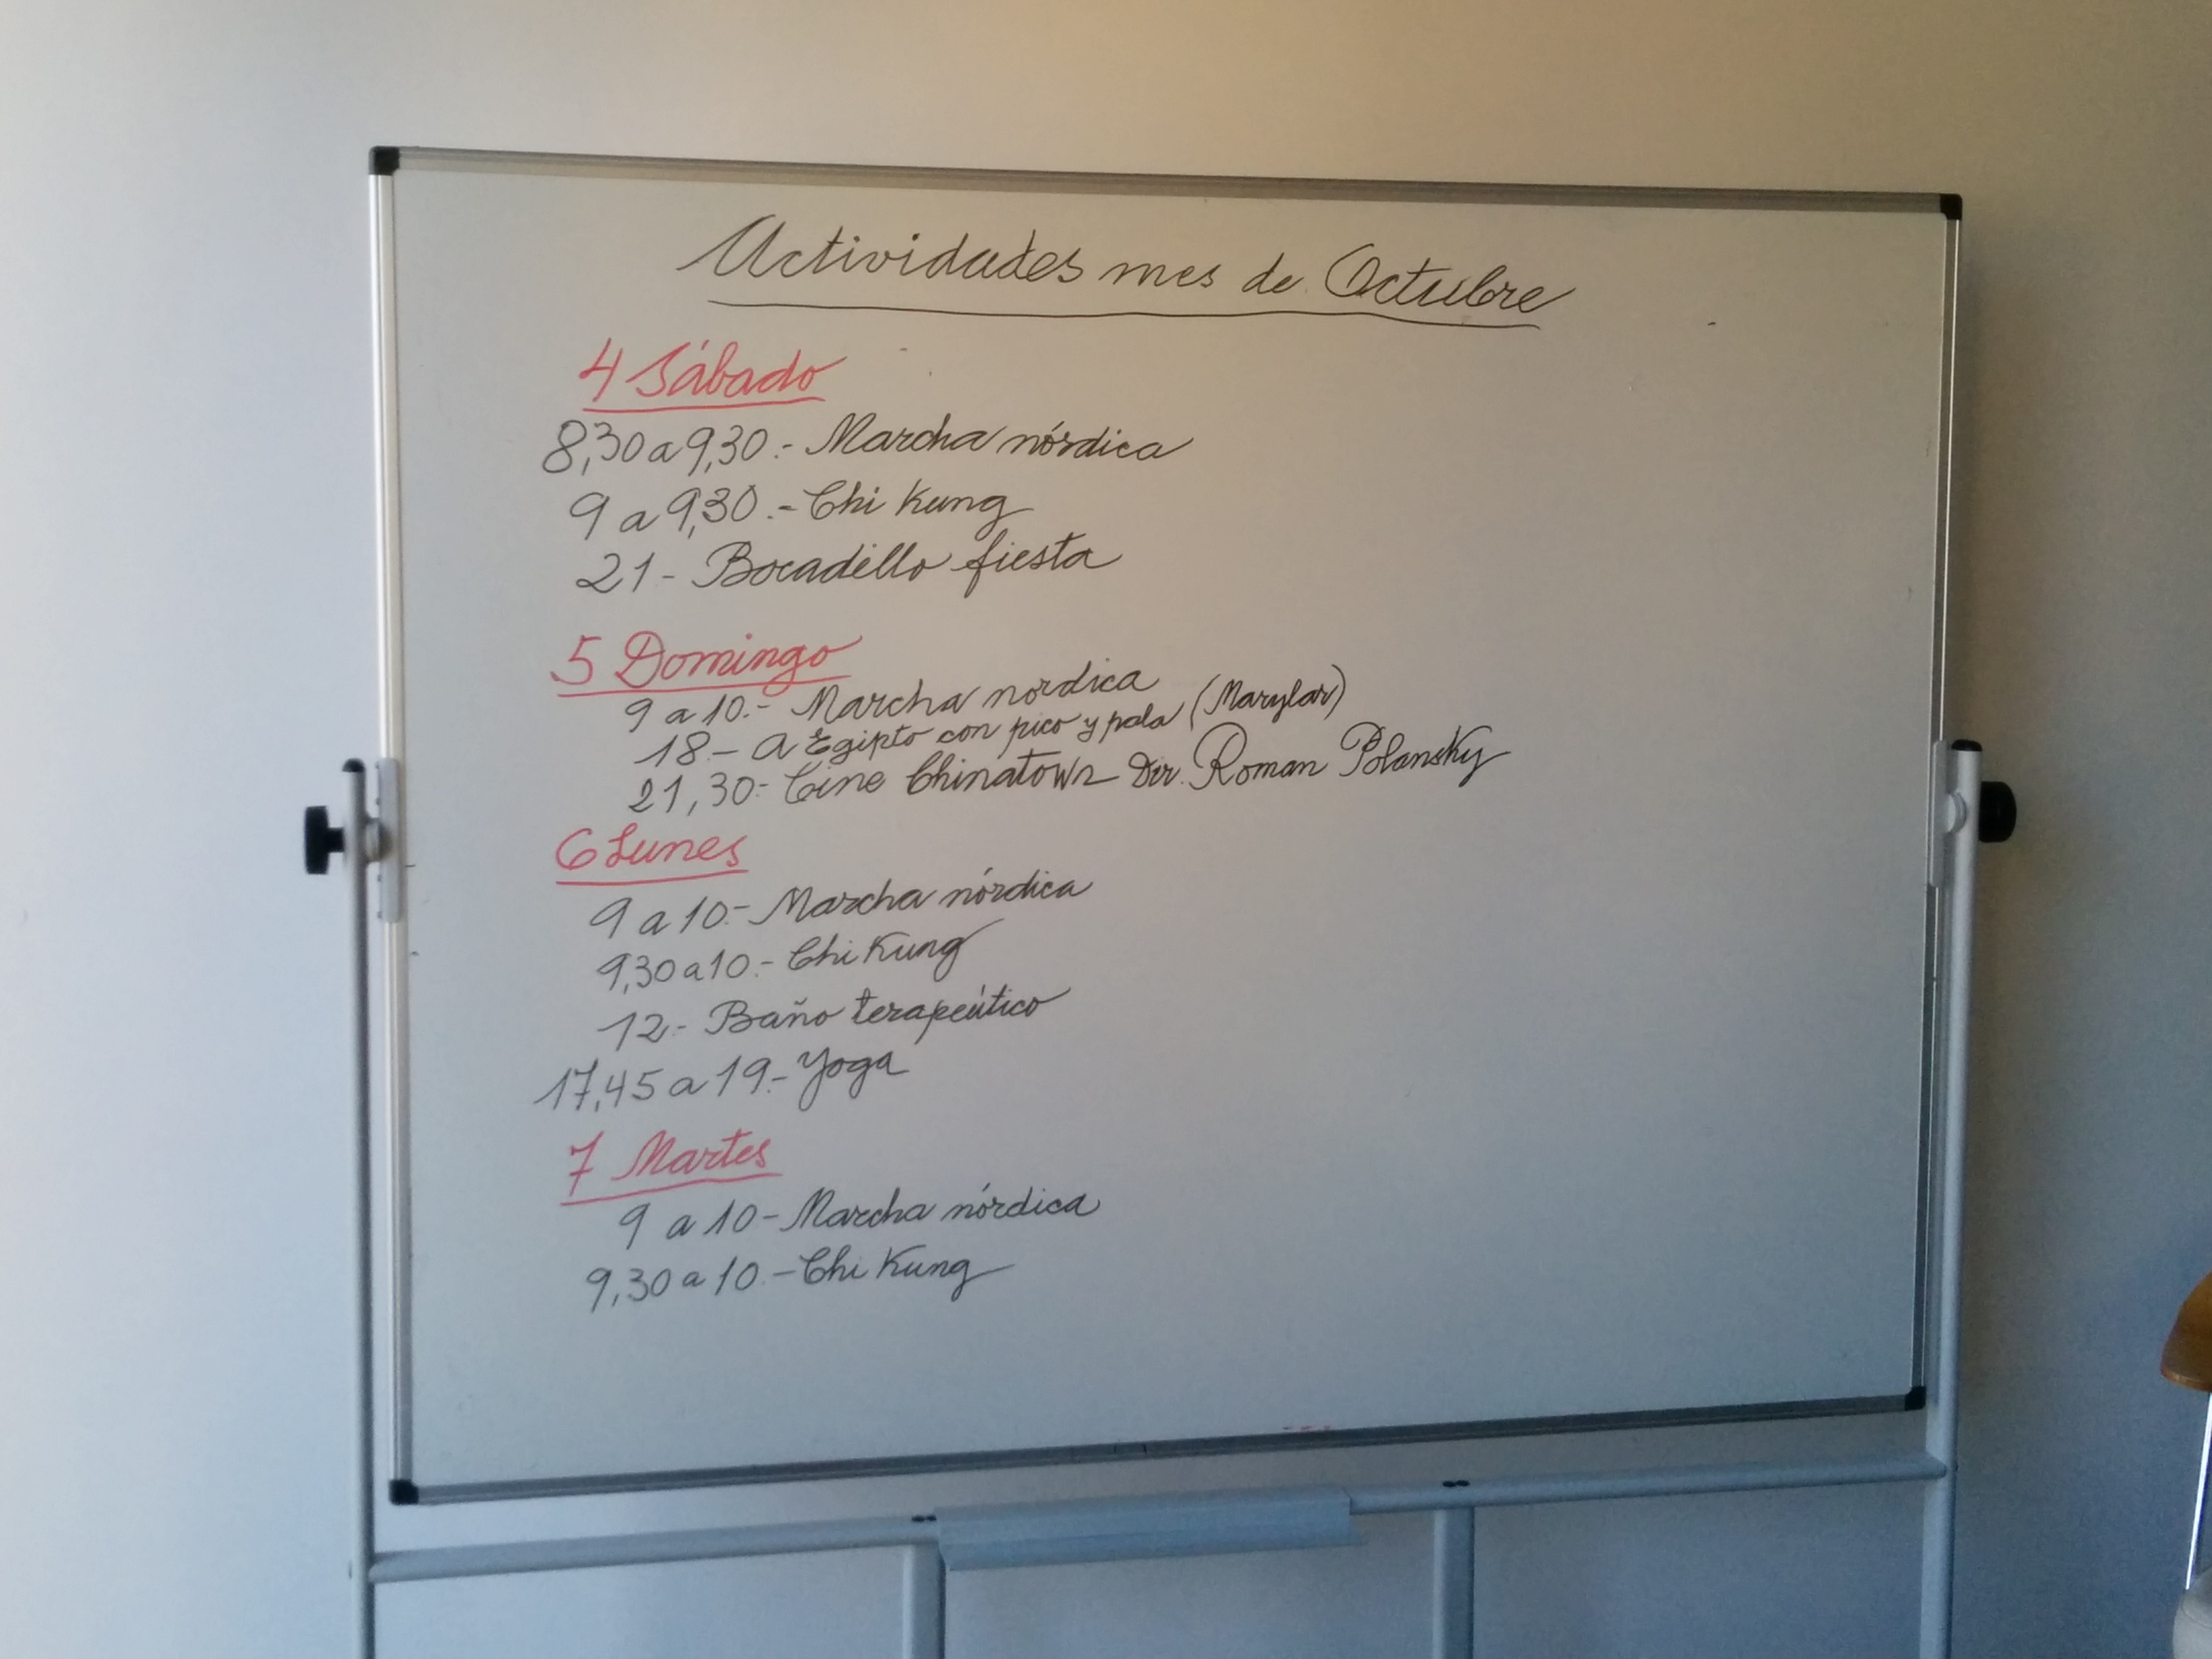 Actividades mes de Octubre
4 Sábado
8,30 a 9,30.- Marcha nórdica
9 a 9,30.- Chi Kung
21- Bocadillo fiesta
5 Domingo
9 a 10.- Marcha nordica
18.- a Egipto con pico y pala (Marylar)
21,30.- Cine Chinatown Dir. Roman Polansky
6 Lunes
9 a 10.- Marcha nórdica
9,30 a 10.- Chi Kung
12.- Baño terapeútico
17,45 a 19.- Yoga
7 Martes
9 a 10- Marcha nórdica
9,30 a 10.- Chi Kung